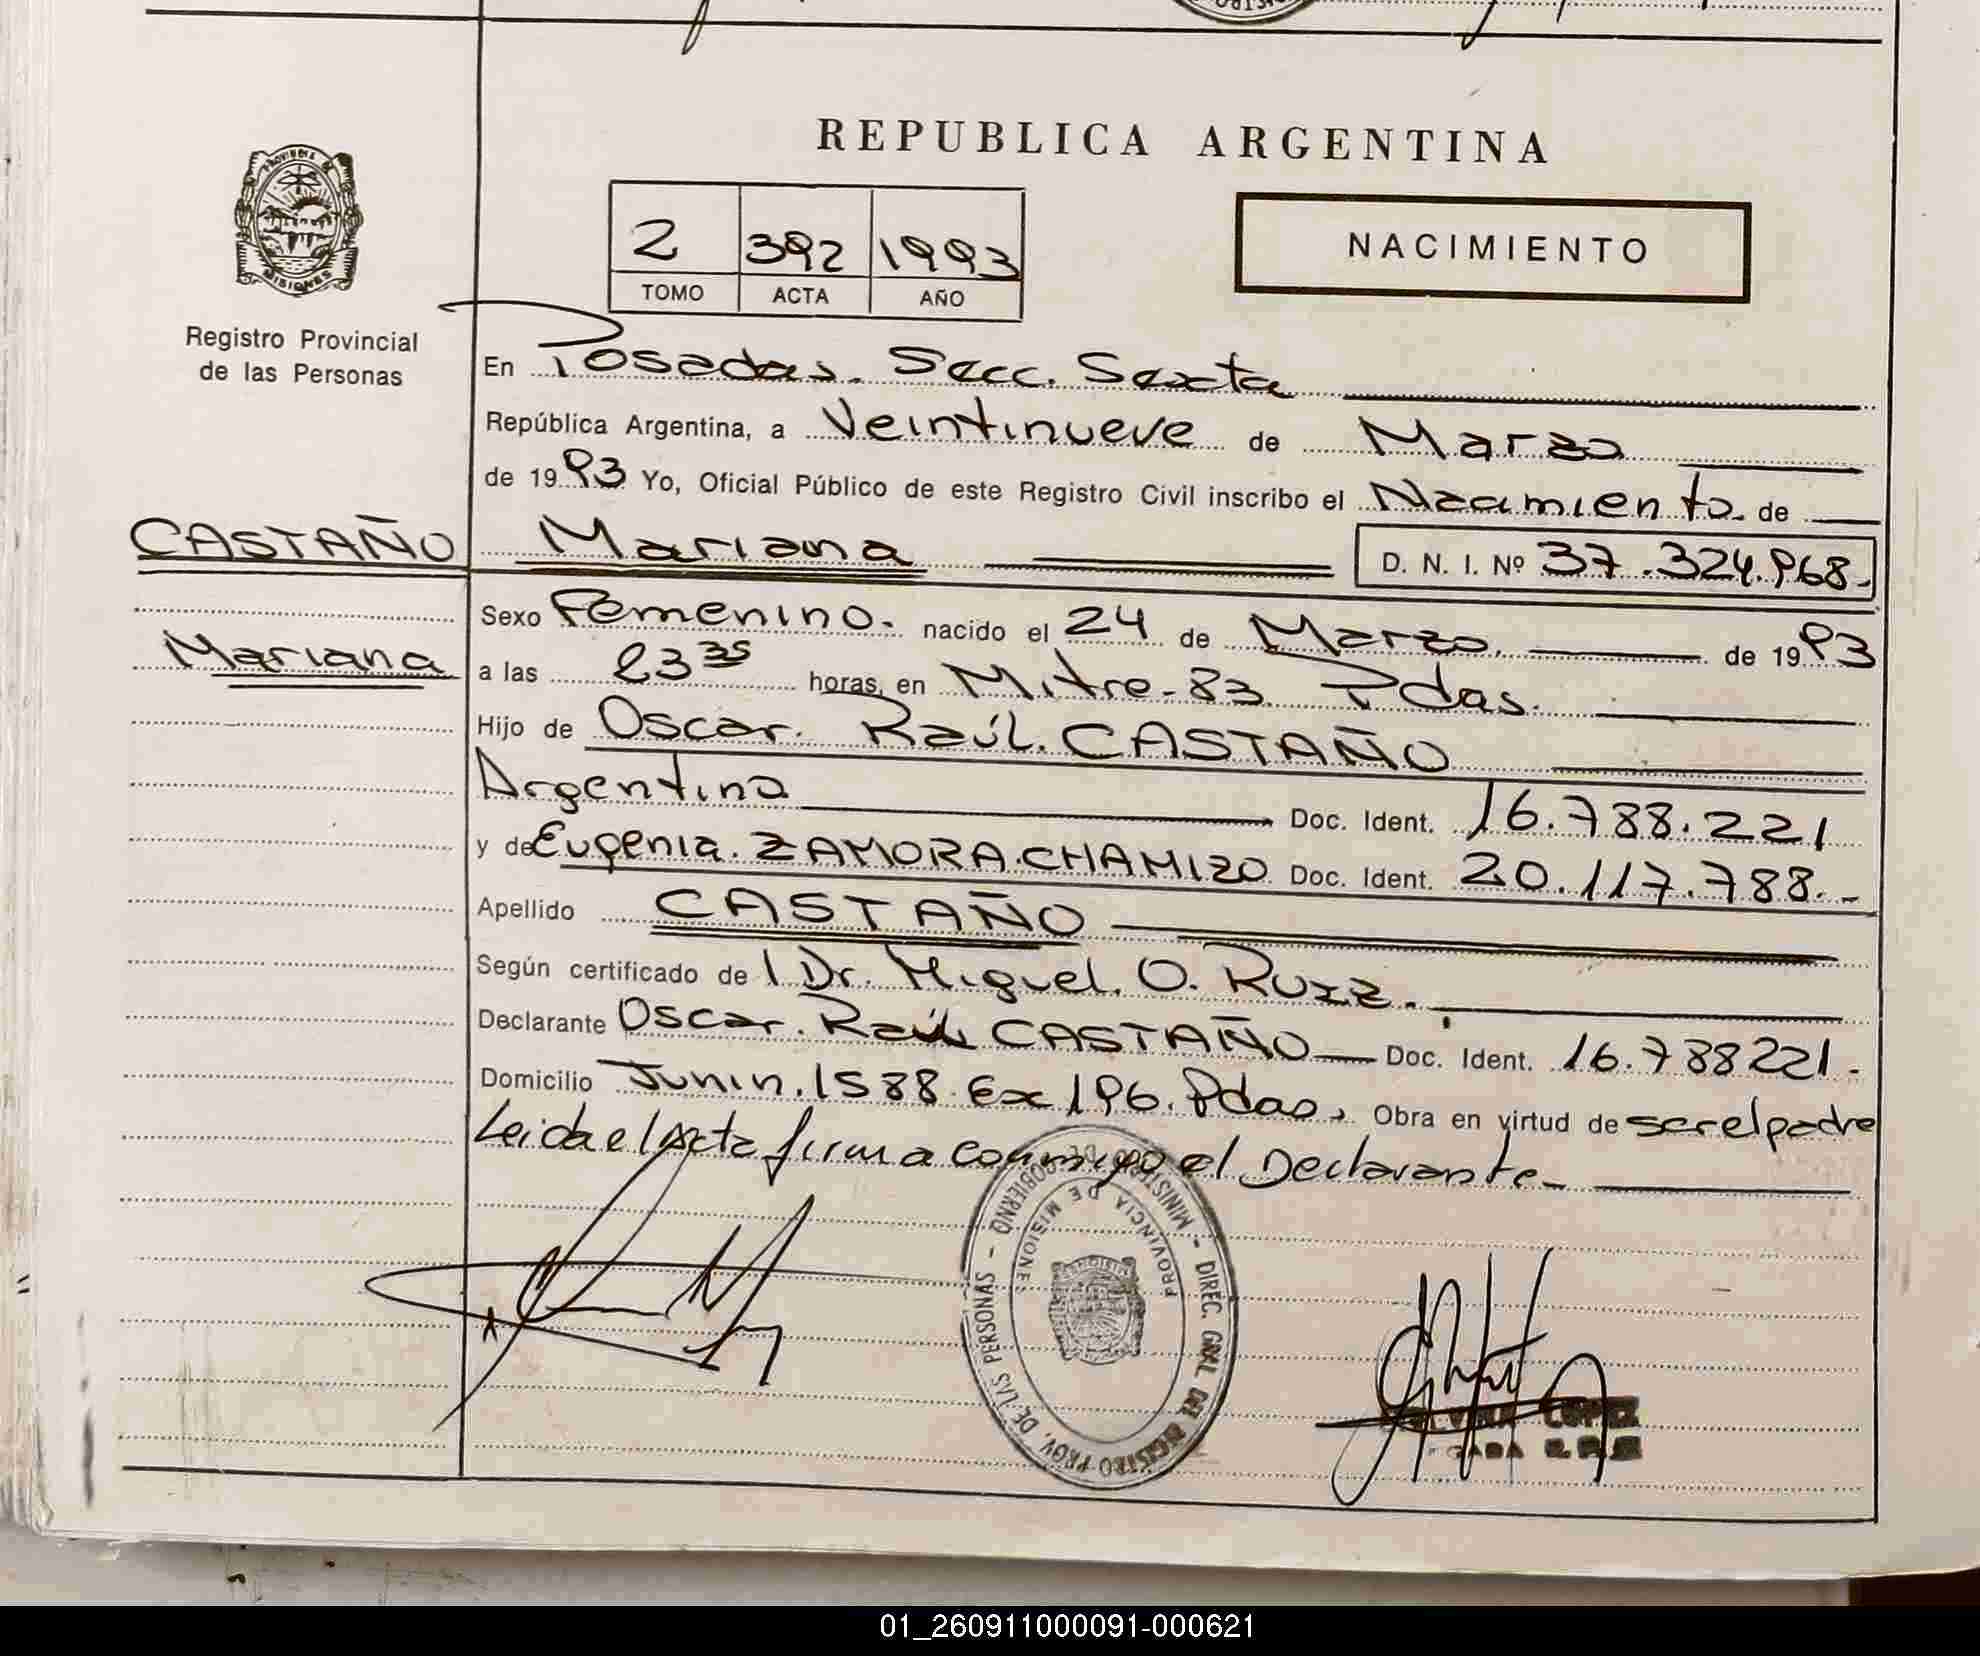 REPUBLICA ARGENTINA
PROVINCIA DE MISIONES
2 392 1993
TOMO ACTA AÑO
NACIMIENTO
Registro Provincial
de las Personas
En Posadas. Secc. Sexta
República Argentina, a Veintinueve de Marzo
de 1993 Yo, Oficial Público de este Registro Civil inscribo el Nacimiento de
CASTAÑO Mariana D. N. I. Nº 37.324.968.-
Sexo Femenino. nacido el 24 de Marzo. de 1993
Mariana
a las 23 35 horas, en Mitre-83. Pdas.
Hijo de Oscar. Raúl. CASTAÑO
Argentina Doc. Ident. 16.788.221
y de Eugenia. ZAMORA.CHAMIZO Doc. Ident. 20.117.788.-
Apellido CASTAÑO
Según certificado de l Dr. Miguel. O. Ruiz.
Declarante Oscar. Raúl CASTAÑO Doc. Ident. 16.788221.
Domicilio Junin.1588.Ex 196.Pdas, Obra en virtud de ser el padre
Leida el Acta firma conmigo el Declarante-
MINISTERIO DE GOBIERNO - DIREC. GRAL DEL REGISTRO PROV. DE LAS PERSONAS -
PROVINCIA DE MISIONES
LOPEZ
01_260911000091-000621